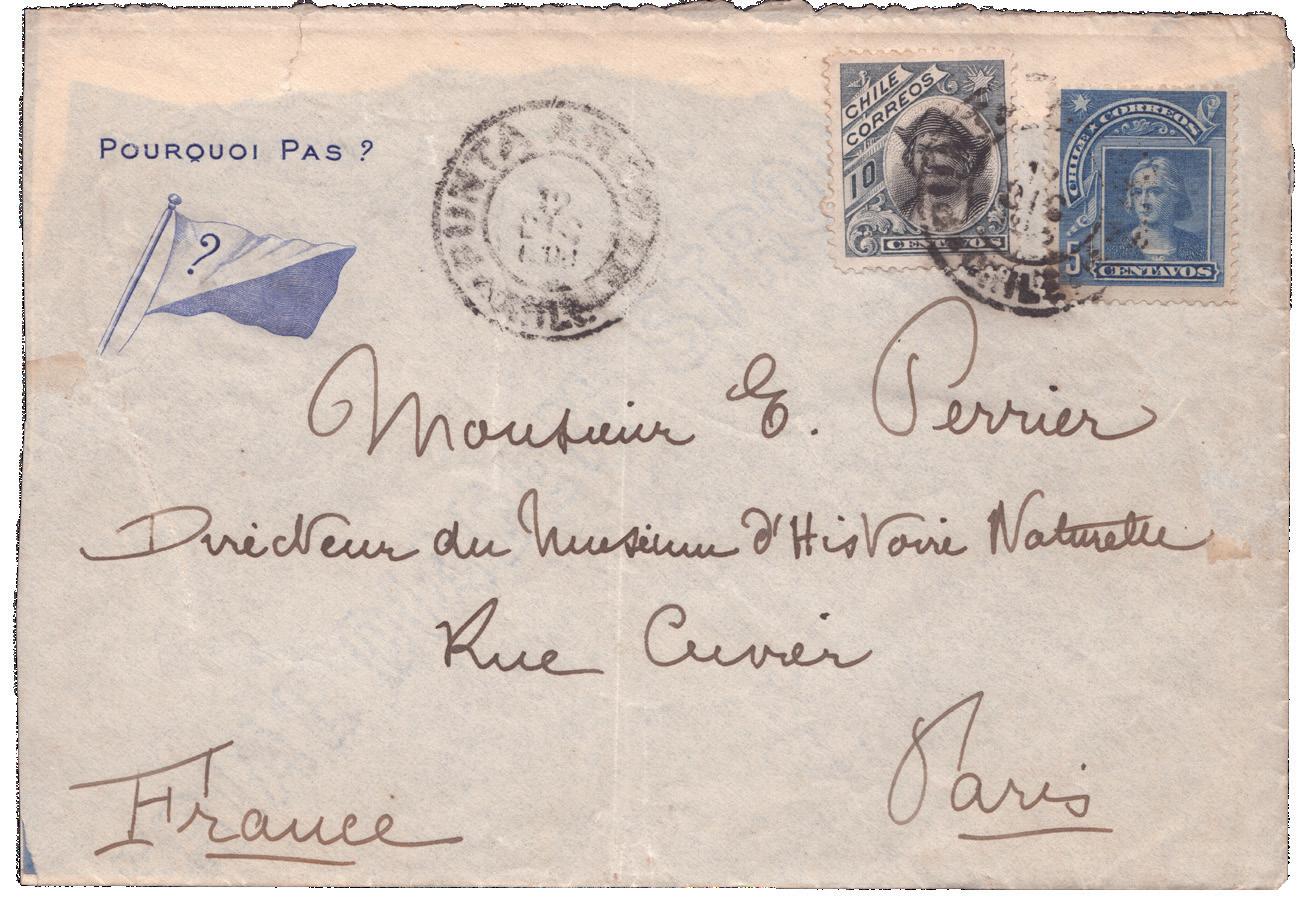 POURQUOI PAS ?
?
PUNTA ARENAS
12
DIC
CHILE
CHILE
CORREOS
10
CENTAVOS
CHILE CORREOS
5
CENTAVOS
12
DIC
CHILE
Monsieur E. Perrier
Directeur du Muséum d'Histoire Naturelle
Rue Cuvier
Paris
France